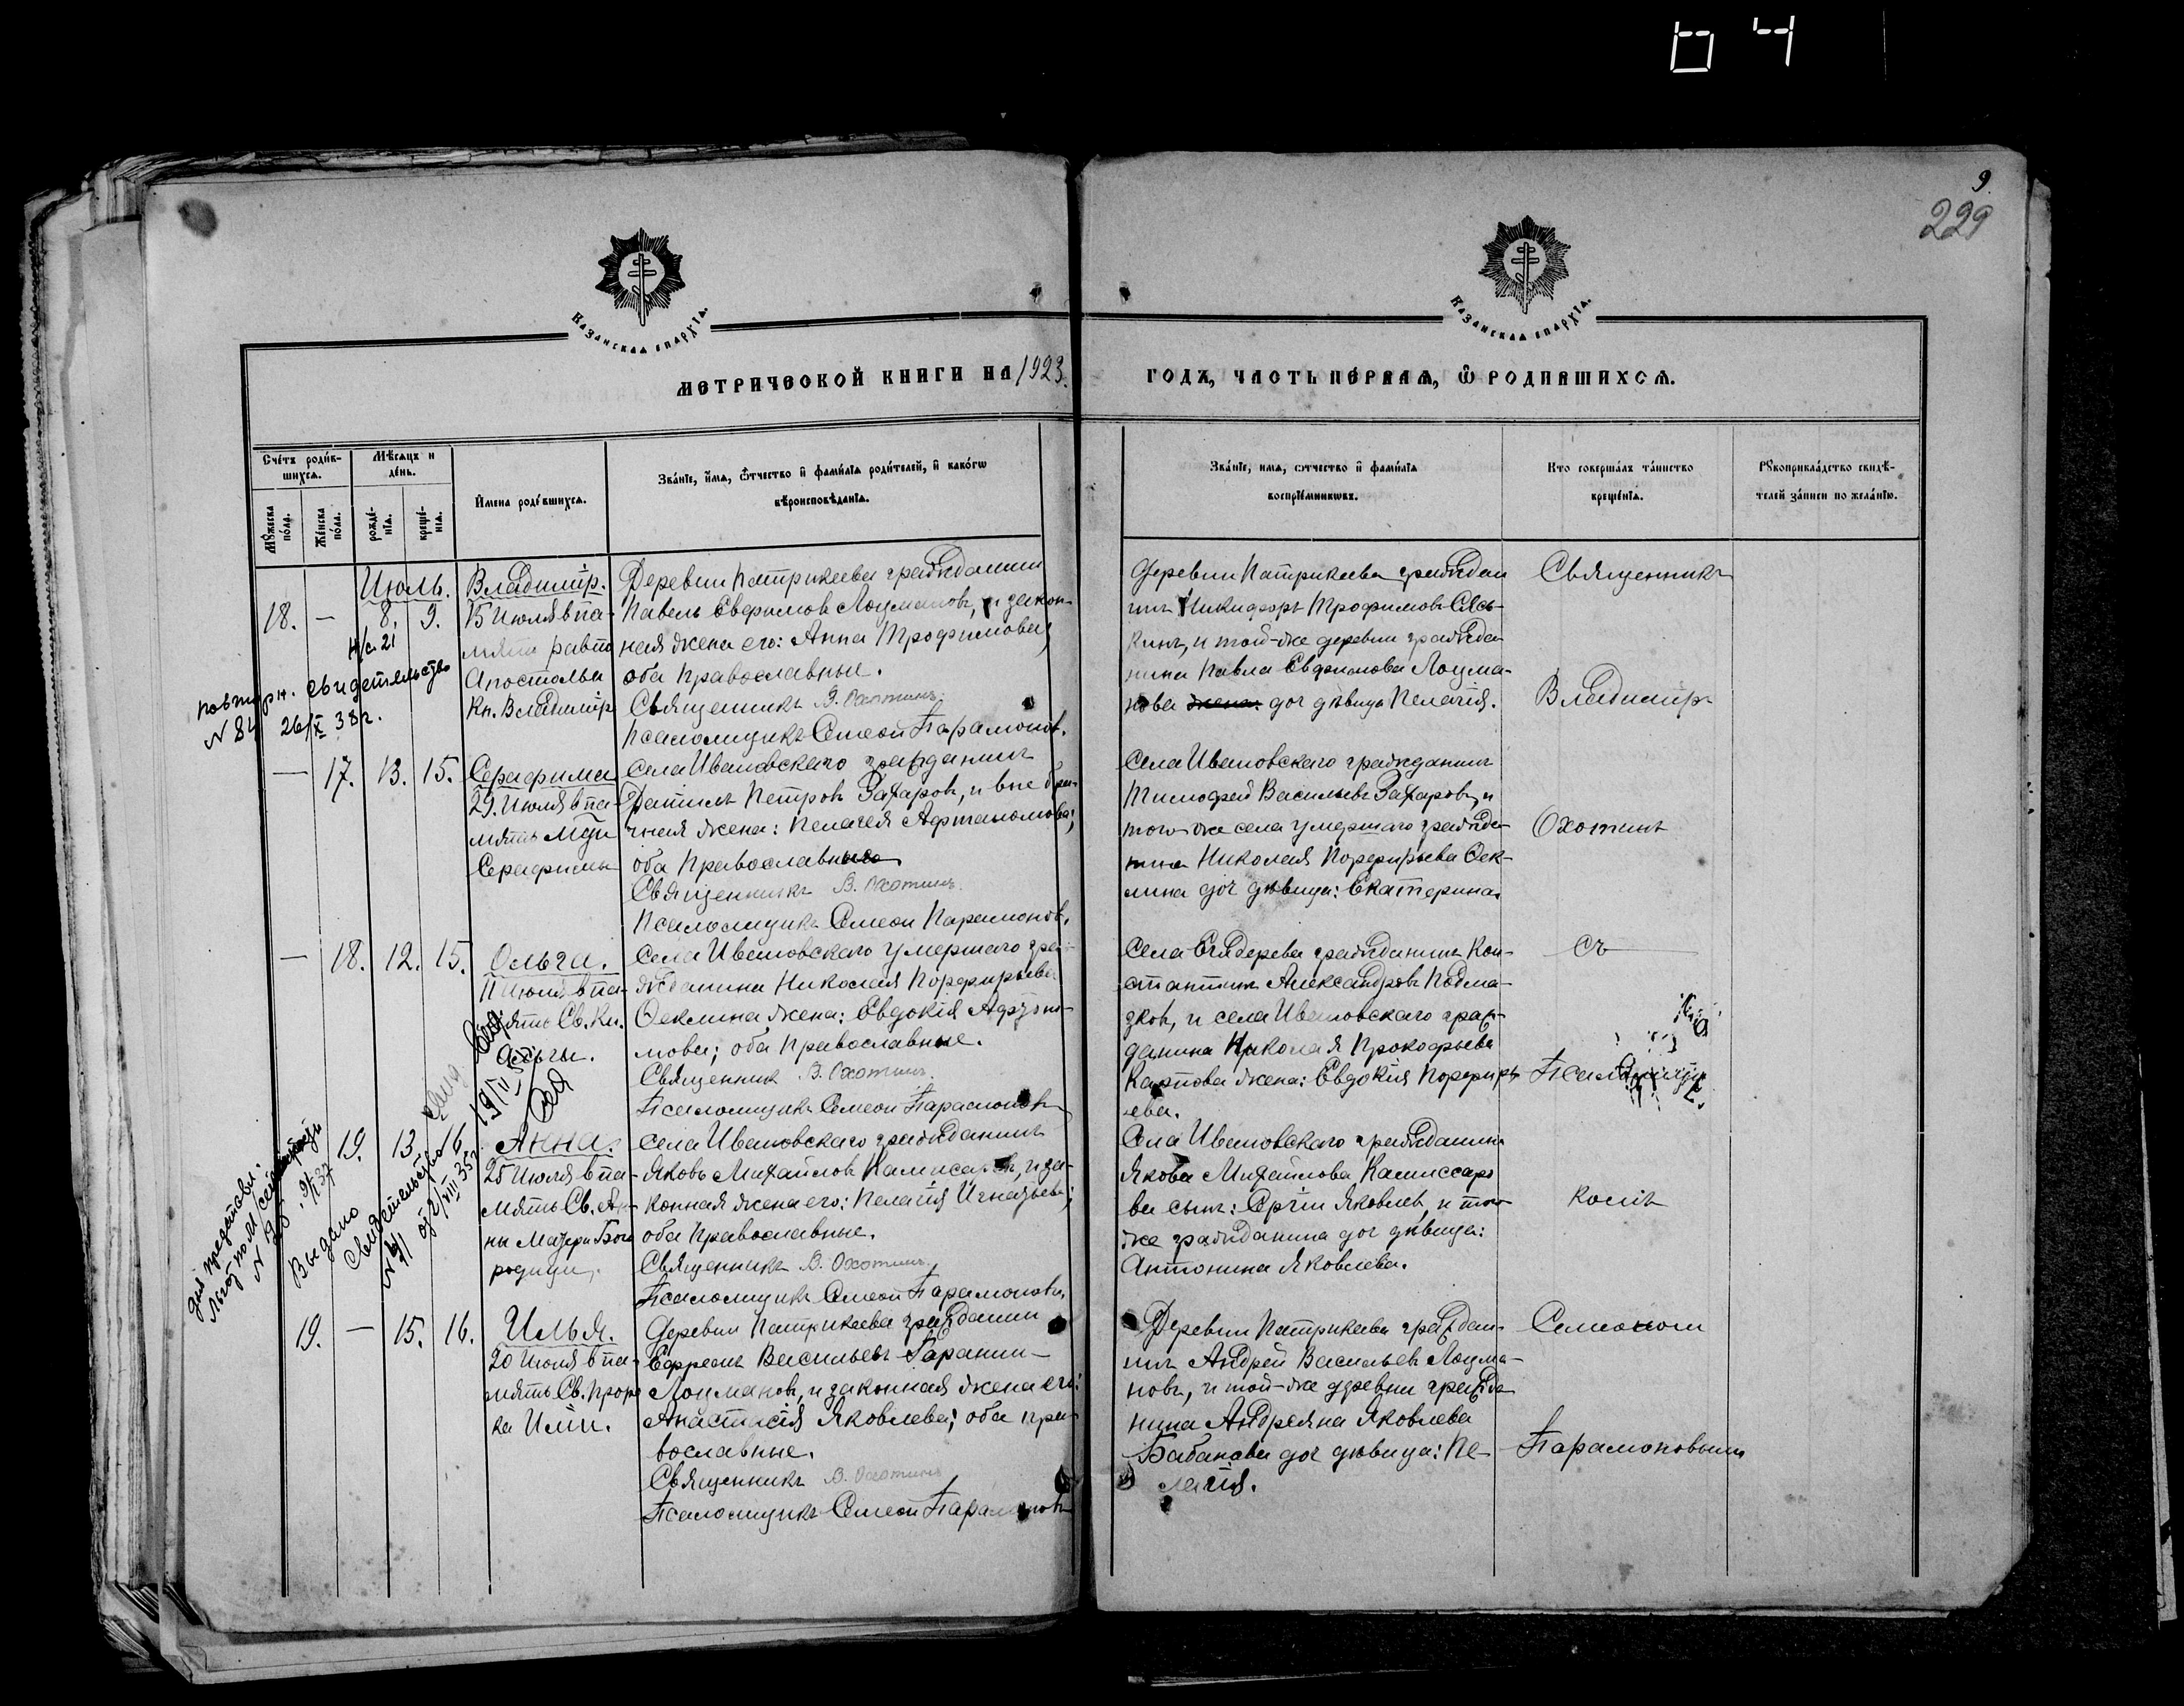 9.
229
Казанская епархїа.
Казанская епархїа.
МЕТРИЧЕСКОЙ КНИГИ НА 1923.
ГОДЪ, ЧАСТЬ ПЕРВАЯ, Ѿ РОДИВШИХСЯ.
Счетъ родив-
шихся.
Мѣсяцъ и
день.
Мужеска
пола.
Женска
пола.
рожде-
нїя.
креще-
нїя.
Имена родившихся.
Званїе, имя, ѿтчество и фамилїя родителей, и какогѡ
вѣроисповѣданїя.
Званїе, имя, ѻтчество и фамилїя
воспрїемникѡвъ.
Кто совершалъ таинство
крещенїя.
Рукоприкладство свидѣ-
телей записи по желанїю.
Июль.
18. — 8. 9.
н/с. 21
Владимір.
15 Июля в па-
мять равно
Апостольн
Кн. Владимір
Деревни Патрикеева гражданин
Павелъ Евфимовъ Лоцмановъ, и закон-
ная жена его: Анна Трофимова;
оба православные.
Священникъ В. Охотинъ.
Псаломщикъ Симеон Парамонов.
Деревни Патрикеева граждан
инъ Никифоръ Трофимовъ
кинъ, и той-же деревни гражда
нина Павла Евфимова Лоцма-
нова жена: доч дѣвица Пелагія.
Священникъ
Владимиръ
повторн. свидетельство
N 84 26/X 38 г.
— 17. 13. 15.
Серафима
29. Июля в па-
мять Муч
Серафимы
Села Ивановскаго гражданинъ
Данилъ Петровъ Захаровъ, и вне бра-
чная жена: Пелагея Афтаномова;
оба православные
Священникъ В. Охотинъ.
Псаломщикъ Симеон Парамонов.
Села Ивановскаго гражданинъ
Тимофей Васильевъ Захаровъ, и
того-же села умершаго гражда-
нина Николая Порфирьева Фек-
лина доч дѣвица: Екатерина.
Охотинъ
— 18. 12. 15.
Ольга.
11 Июля в па-
мять Св. Кн.
Ольги.
Села Ивановскаго умершаго гра-
жданина Николая Порфирьева
Феклина жена: Евдокія
мова; оба православные.
Священник В. Охотинъ.
Псаломщикъ Симеон Парамоновъ
Села гражданинъ Кон-
стантинъ Александровъ Подма-
зковъ, и села Ивановскаго граж-
данина Николая Прокофьева
Карпова жена: Евдокія Порфирь-
ева.
съ
— 19. 13. 16.
Анна.
25 Июля в па-
мять Св. Ан-
ны Матери Бого
родицы.
Села Ивановскаго гражданинъ
Яковъ Михайловъ Камисаровъ, и за-
конная жена его: Пелагія Игнатьева;
оба православные.
Священникъ В. Охотинъ.
Псаломщикъ Симеон Парамоновъ.
Села Ивановскаго гражданина
Якова Михайлова Камиссаро
ва сынъ: Сергій Яковлев, и того
же гражданина доч дѣвица:
Антонина Яковлева.
комъ
Выдано
свидетельство
N 91 от 2/VIII 35 г.
19. — 15. 16.
Илья.
20 Июля в па-
мять Св. Проро
ка Иліи.
Деревни Патрикеева гражданин
Ефремъ Васильевъ Гаранин-
Лоцмановъ, и законная жена его:
Анастасія Яковлева; оба пра-
вославные.
Священникъ В. Охотинъ
Псаломщикъ Симеон Парамоновъ
Деревни Патрикеева граждан-
инъ Андрей Васильевъ Лоцма-
новъ, и той-же деревни гражда-
нина Андреяна Яковлева
Бабанова доч дѣвица: Пе-
лагія.
Симеоном
Парамоновымъ